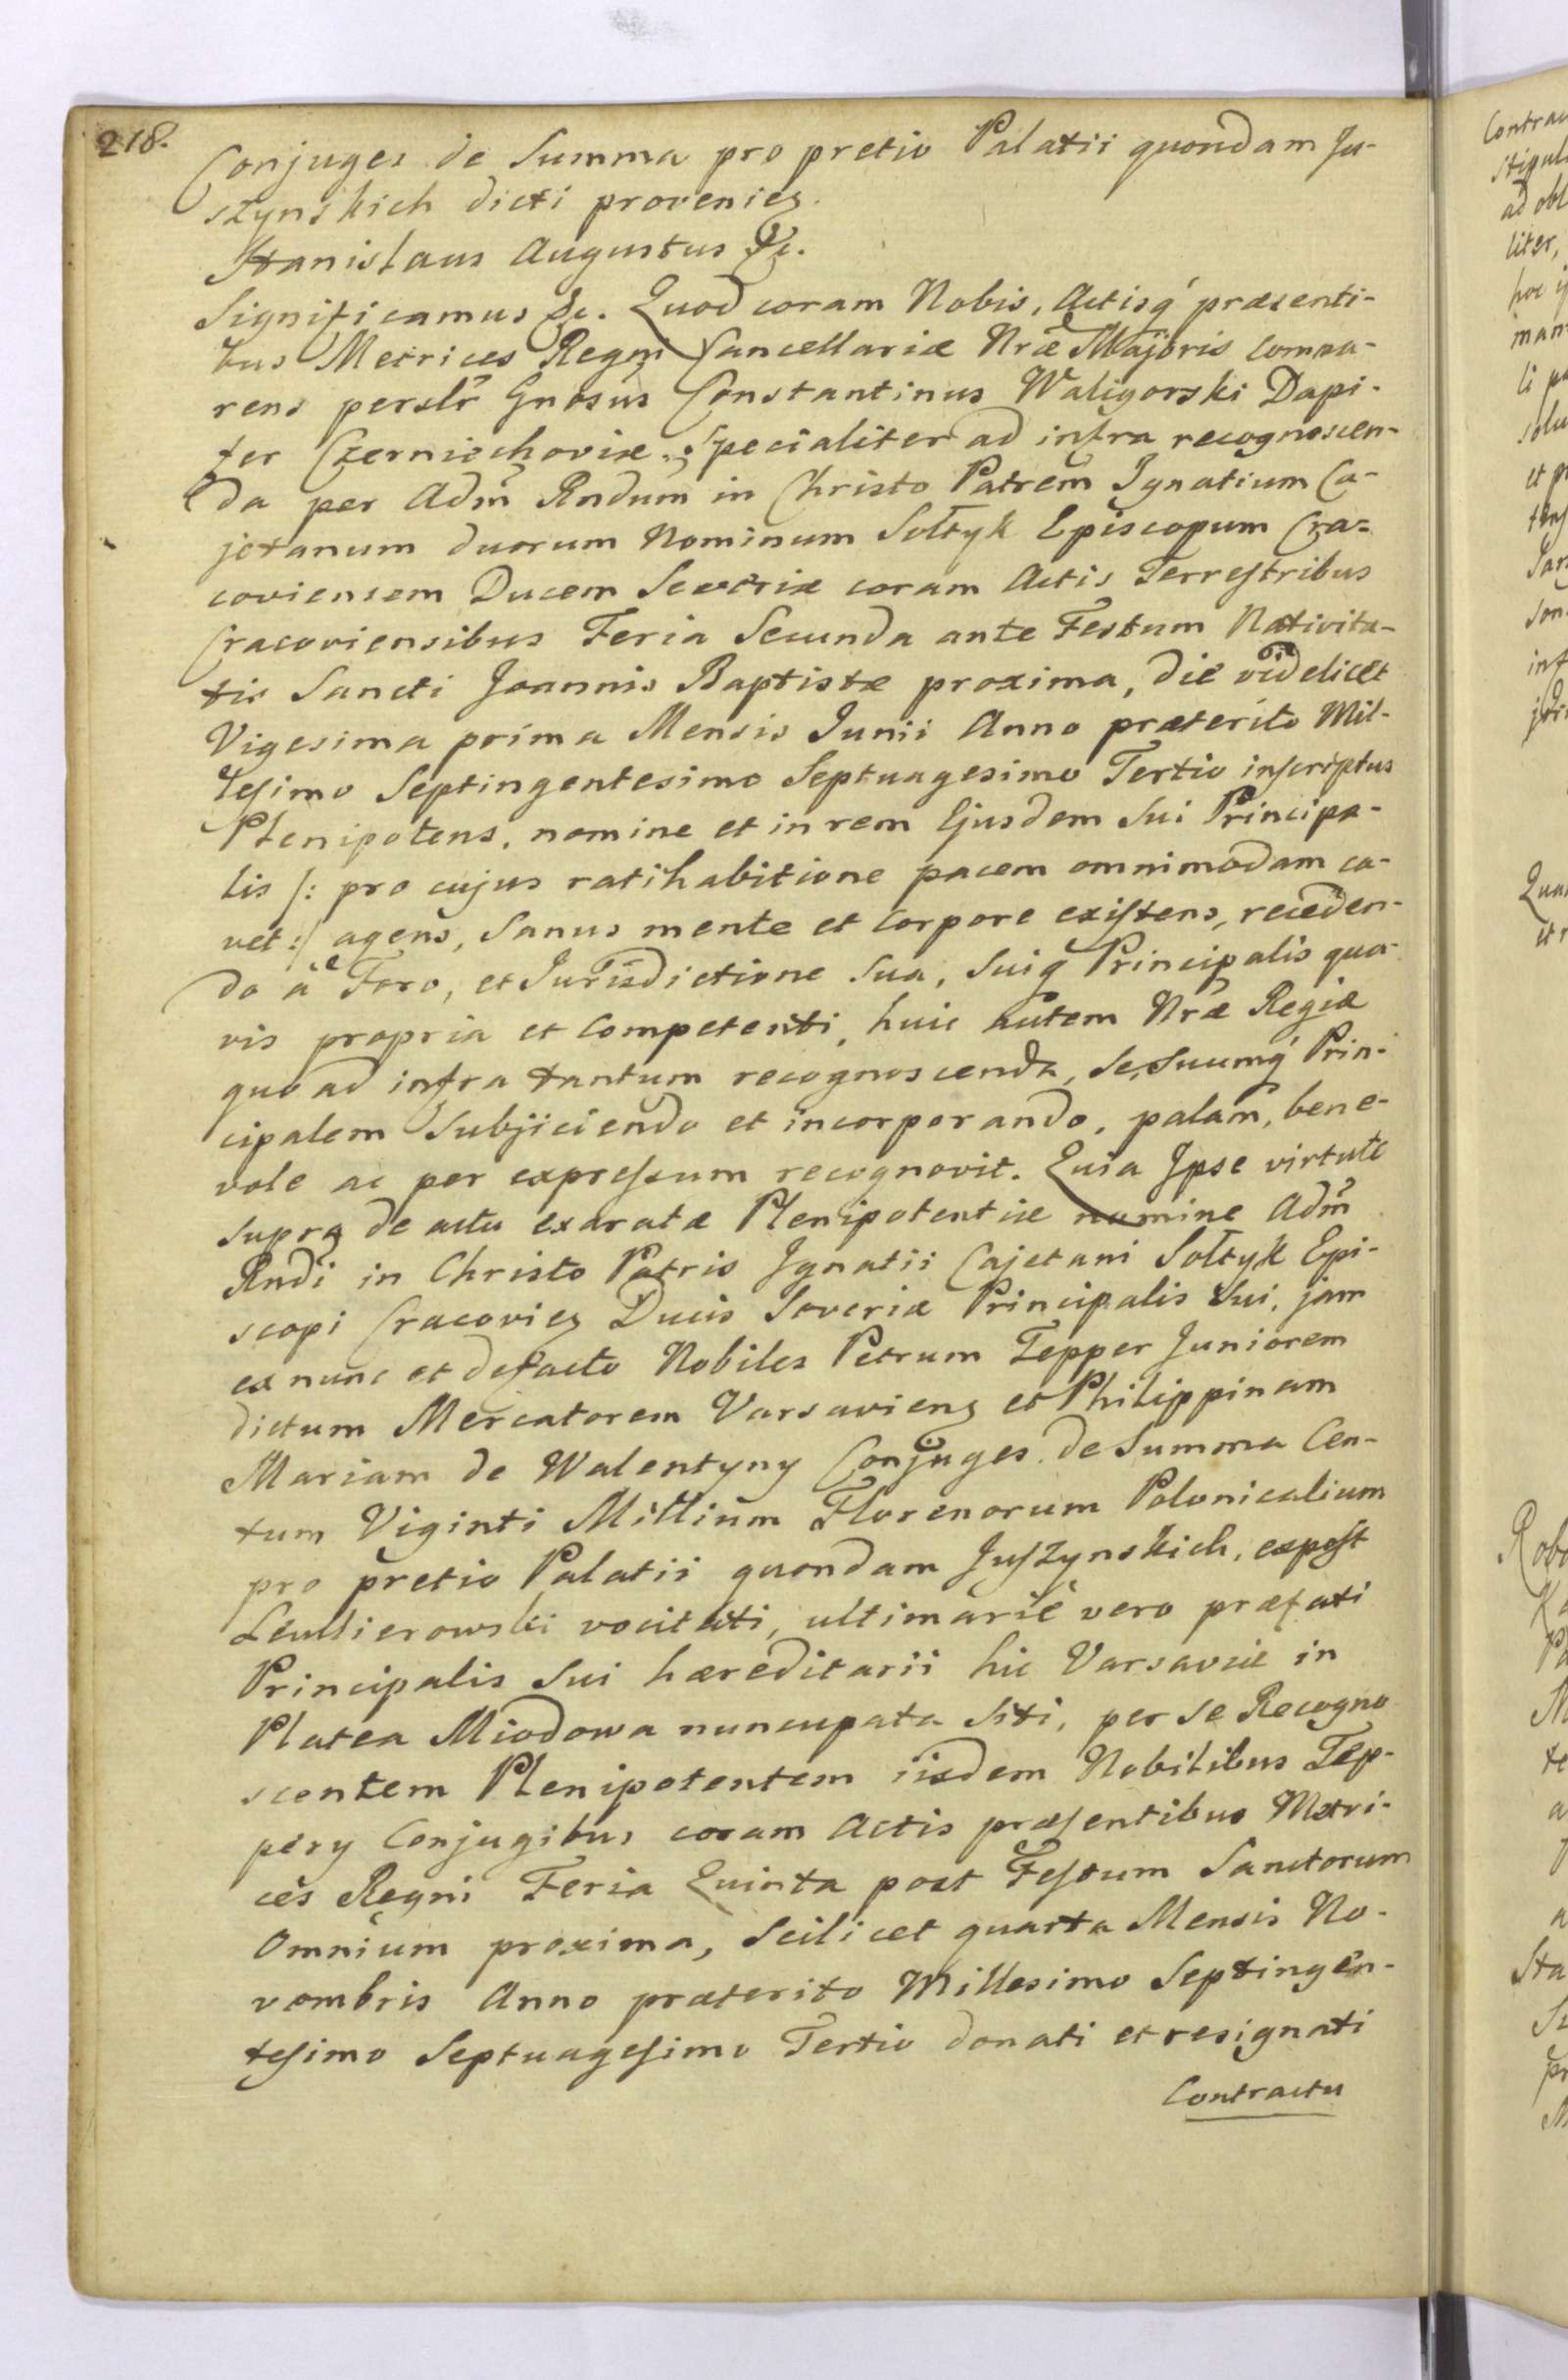 218.
Conjuges de Summa pro pretio Palatii quondam Ju-
szynskich dicti proveniez.
Stanislaus Augustus &c.
Significamus &c. Quod coram Nobis, Actisq́ præsenti-
bus Metrices Regni Cancellariæ Nræ Majoris compa-
rens perslr̃ Gnosus Constantinus Waligorski Dapi-
fer Czerniechoviæ. Specialiter ad infra recognoscen-
da per Adm̃ Rndum in Christo Patrem Ignatium Ca-
jetanum duorum Nominum Sołtyk Episcopum Cra-
coviensem Ducem Severiæ coram Actis Terrestribus
Cracoviensibus Feria Secunda ante Festum Nativita-
tis Sancti Joannis Baptistæ proxima, die videlicet
Vigesima prima Mensis Junii Anno præterito Mil-
lesimo Septingentesimo Septuagesimo Tertio inscriptus
Plenipotens, nomine et in rem Ejusdem Sui Principa-
lis /: pro cujus ratihabitione pacem omnimodam ca-
vet :/ agens, Sanus mente et Corpore existens, receden-
do à Foro, et Jurisdictione Sua, Suiq́ Principalis qua-
vis propria et Competenti, huic autem Nræ Regiæ
quo ad infra tantum recognoscenda, Se, Suumq́ Prin-
cipalem Subjiciendo et incorporando, palam, bene-
vole ac per expressum recognovit. Quia Ipse virtute
supra de actu exaratæ Plenipotentiæ nomine Adm̃
Rndi in Christo Patris Ignatii Cajetani Sołtyk Epi-
scopi Cracoviez Ducis Severiæ Principalis Sui, jam
ex nunc et defacto Nobiles Petrum Tepper Juniorem
dictum Mercatorem Varsavienz et Philippinam
Mariam de Walentyny Conjuges. de Summa Cen-
tum Viginti Millium Florenorum Polonicalium
pro pretio Palatii quondam Juszynskich, expost
vocitati, ultimariè vero præfati
Principalis Sui hæreditarii hic Varsaviæ in
Platea Miodowa nuncupata Siti, per Se Recogno
scentem Plenipotentem iisdem Nobilibus Tep-
pery Conjugibus coram Actis præsentibus Metri-
ces Regni Feria Quinta post Festum Sanctorum
Omnium proxima, Scilicet quarta Mensis No-
vembris Anno præterito Millesimo Septingen-
tesimo Septuagesimo Tertio donati et resignati
Contractu